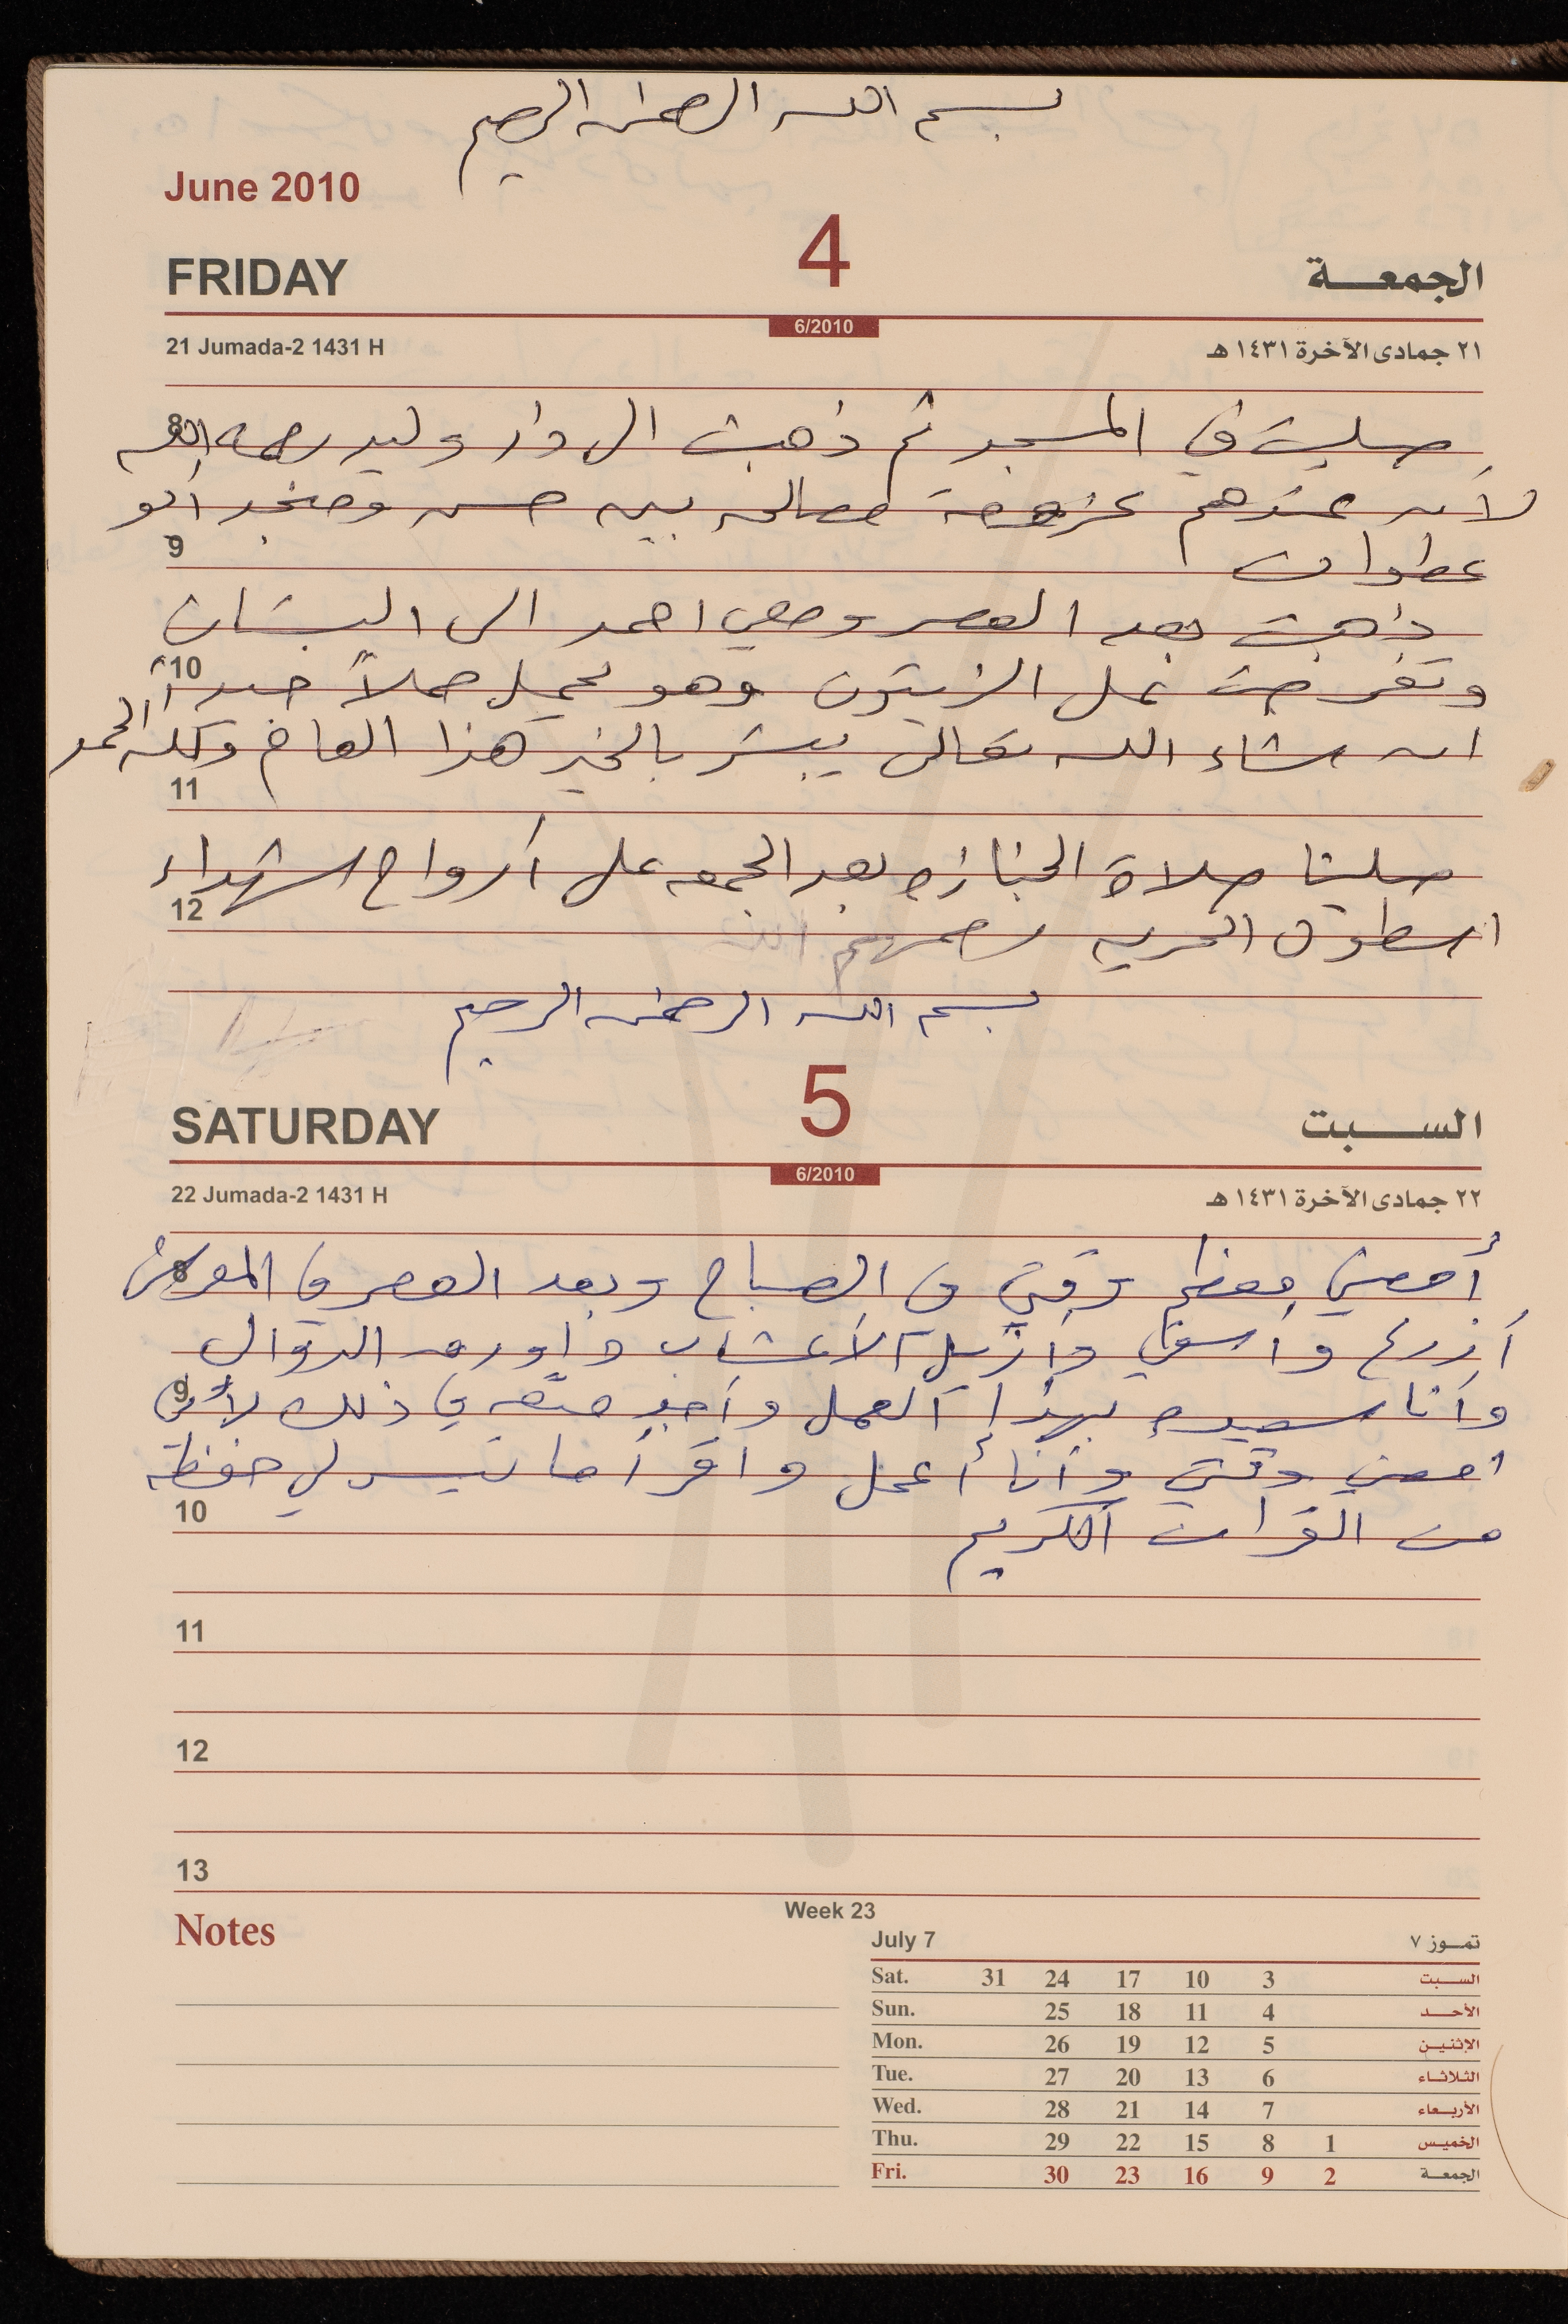 بسم الله الرحمن الرحيم
June 2010
FRIDAY 4 الجمعة
6/2010
21 Jumada-2 1431 H ٢١ جمادى الآخرة ١٤٣١ هـ
8 صليت في المسجد ثم ذهبت الى دار وليد رحمه الله
لأن عندهم عزومة مصالحه بين حسن وصخر ابو
9
عطوان
ذهبت بعد العصر ومعي احمد الى البستان
10
وتفرجت على الزيتون وهو يحمل حملاً جيداً
ان شاء الله تعالى يبشر بالخير هذا العام ولله الحمد
11
صلينا صلاة الجنازه بعد الجمعه على أرواح شهداء
12
اسطول الحريه رحمهم الله
بسم الله الرحمن الرحيم
SATURDAY 5 السبت
6/2010
22 Jumada-2 1431 H ٢٢ جمادى الآخرة ١٤٣١ هـ
8 أمضي معظم وقتي في الصباح وبعد العصر في
أزرع وأسقي وأزيل الأعشاب و الدوالي
9 وأنا سعيده بهذا العمل وأجد متعه في ذلك لأني
امضي وقتي وأنا أعمل واقرأ ما تيسر لي حفظه
10
من القران الكريم
11
12
13
Notes
Week 23
July 7 تموز ٧
Sat. 31 24 17 10 3 السبت
Sun. 25 18 11 4 الأحد
Mon. 26 19 12 5 الإثنين
Tue. 27 20 13 6 الثلاثاء
Wed. 28 21 14 7 الأربعاء
Thu. 29 22 15 8 1 الخميس
Fri. 30 23 16 9 2 الجمعة